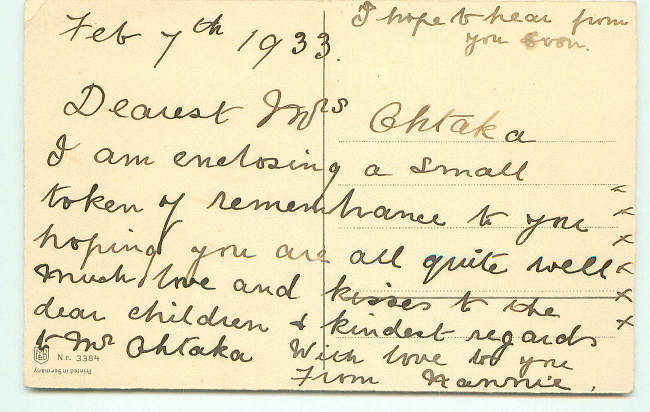 I hope to hear from
you soon.
Feb 7th 1933.
Dearest Mrs Ohtaka
I am enclosing a small
token of remembrance to you
hoping you are all quite well
much love and kisses to the
dear children & kindest regards
to Mr Ohtaka With love to you
From Nannie.
x
x
x
x
x
x
Nr. 3384
Printed in Germany